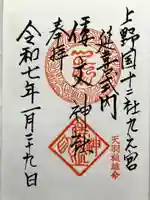 上野国十二社九之宮
延喜式内
倭文神社
奉拝
天羽槌雄命
令和七年一月二十九日